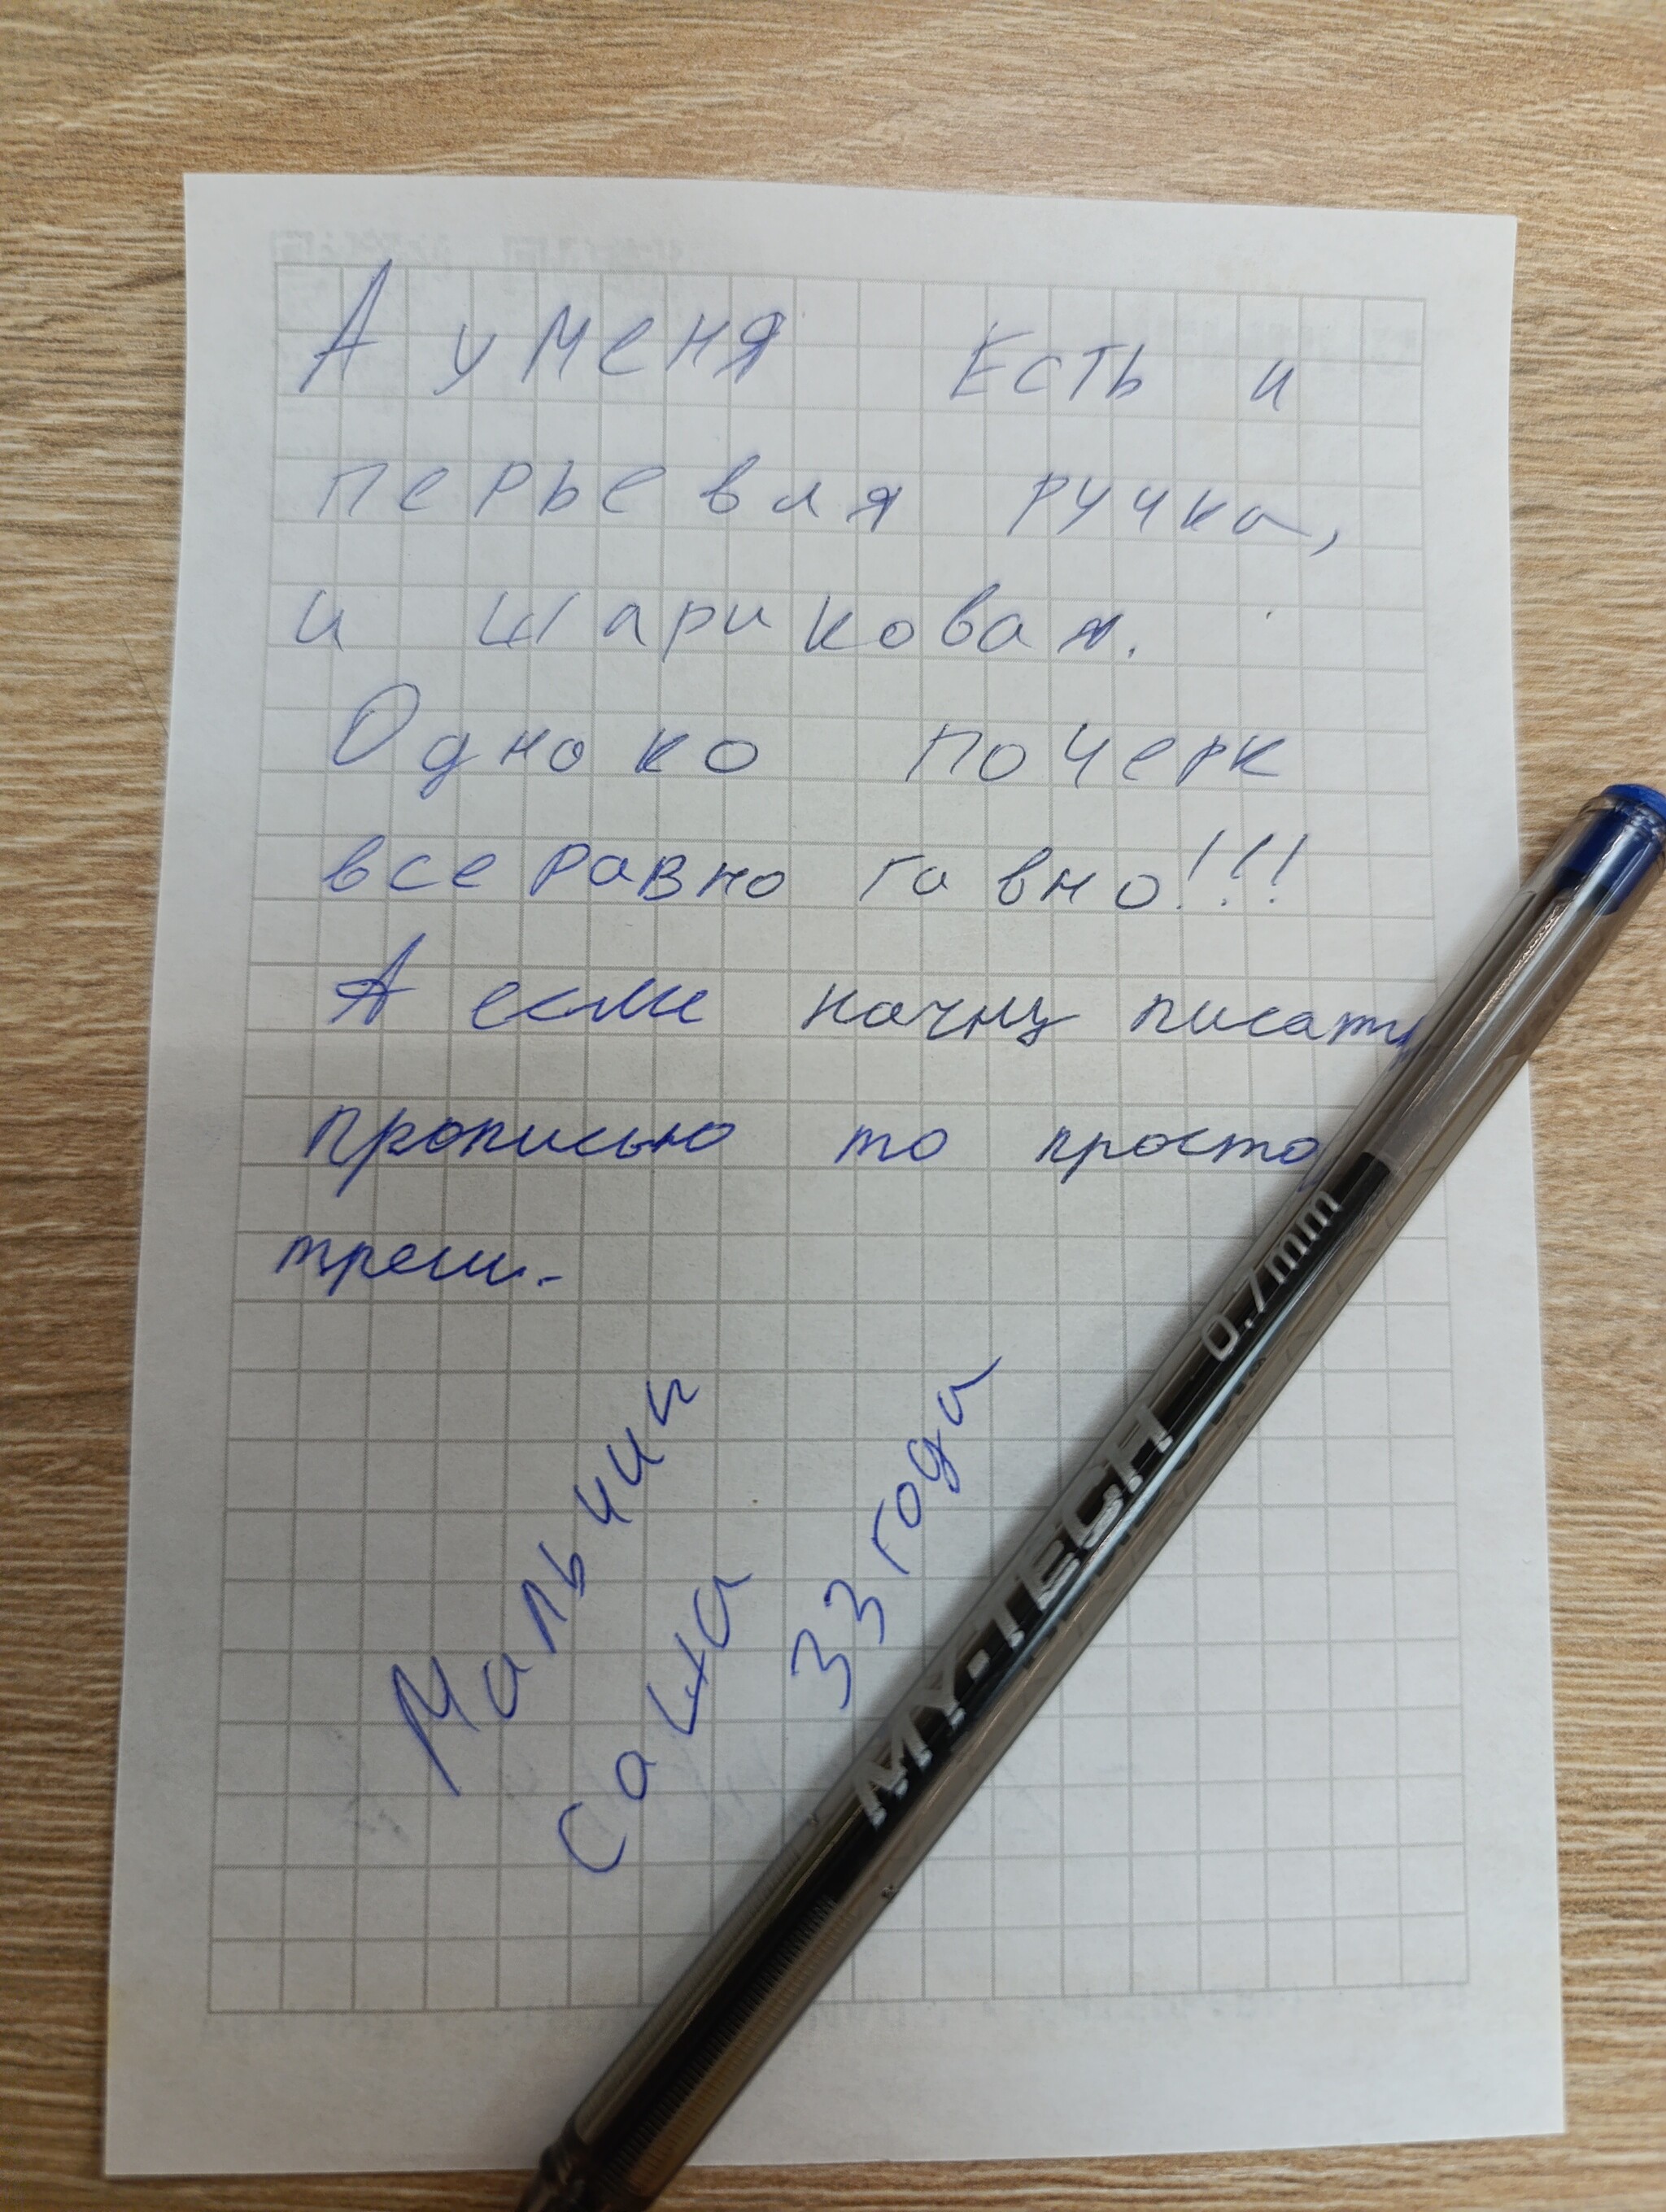 А у меня есть и
перьевая ручка,
и шариковая.
Однако почерк
все равно гавно!!!
А если начну писать
прописью то просто
треш.
Мальчик
саша
33 года
MY-TECH 0.7mm